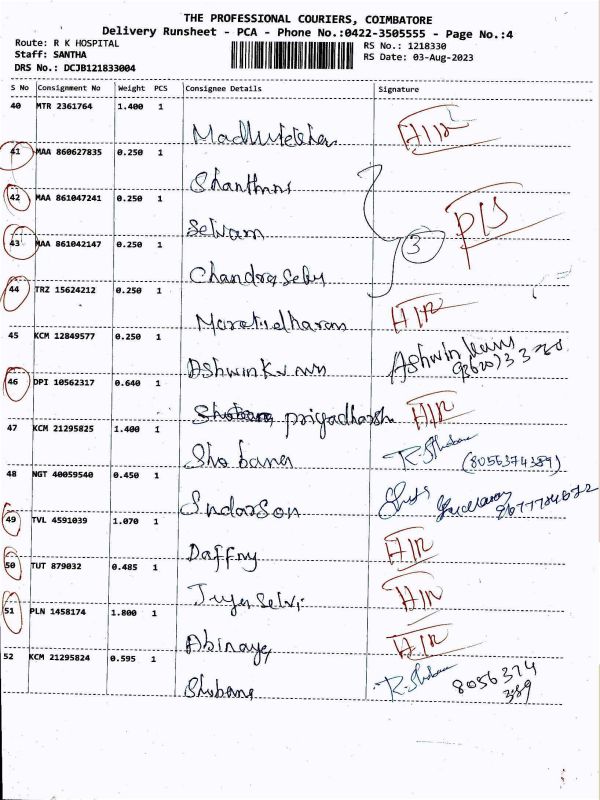 THE PROFESSIONAL COURIERS, COIMBATORE
Delivery Runsheet - PCA - Phone No.:0422-3505555 - Page No.:4
Route: R K HOSPITAL
RS No.: 1218330
Staff: SANTHA
RS Date: 03-Aug-2023
DRS No.: DCJB121833004
S No Consignment No Weight PCS Consignee Details Signature
40 MTR 2361764 1.400 1
HIR
41 MAA 860627835 0.250 1
42 MAA 861047241 0.250 1
Selvam
43 MAA 861042147 0.250 1
3
44 TRZ 15624212 0.250 1
HIR
45 KCM 12849577 0.250 1
Ashwin
46 DPI 10562317 0.640 1
HIR
47 KCM 21295825 1.400 1
Shobana R. Shobana (8056374389)
48 NGT 40059540 0.450 1
49 TVL 4591039 1.070 1
Daffny HIR
50 TUT 879032 0.485 1
HIR
51 PLN 1458174 1.800 1
Abinaya HIR
52 KCM 21295824 0.595 1
Shobana R. Shobana 8056374
389